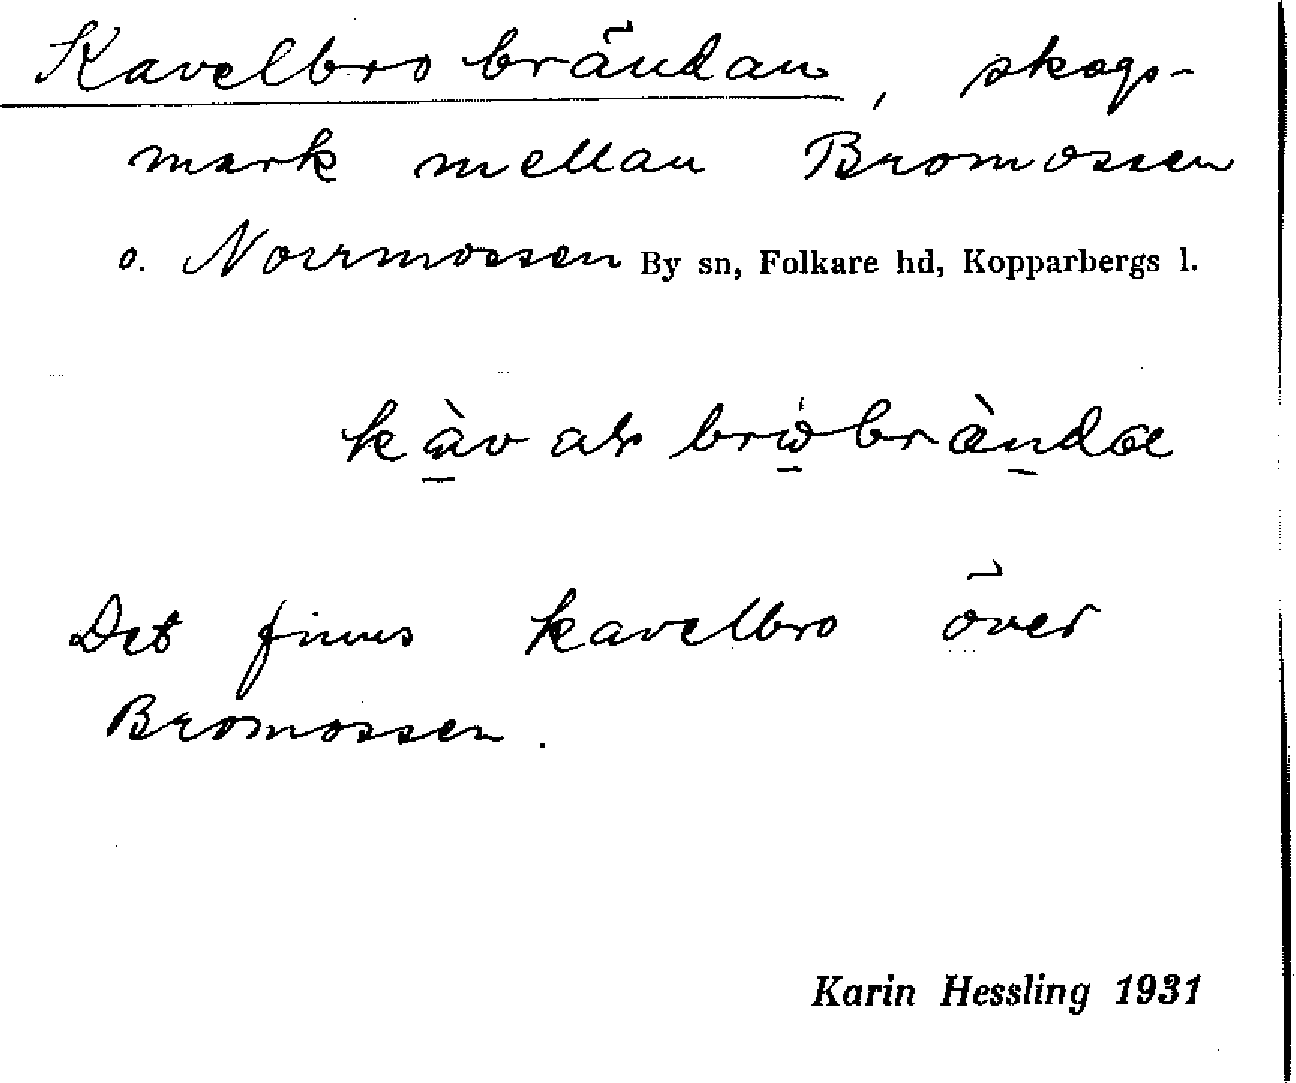 Kavelbrobrändan, skogs-
mark mellan Bromossen
o. Norrmossen By sn, Folkare hd, Kopparbergs l.
Det finns kavelbro över
Bromossen.
Karin Hessling 1931